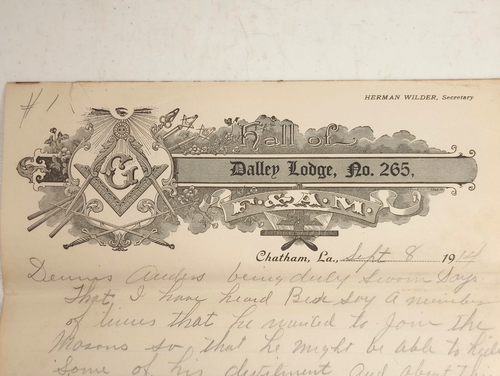 #1
HERMAN WILDER, Secretary
G
Hall of
Dalley Lodge, No. 265,
F. & A. M.
Chatham, La., Sept 8 1914
Dennis Anders being duly Sworn Says
That, I have heard Bud Say A number
of times that he wanted to Join the
Masons so that he might be able to
Some of his And about